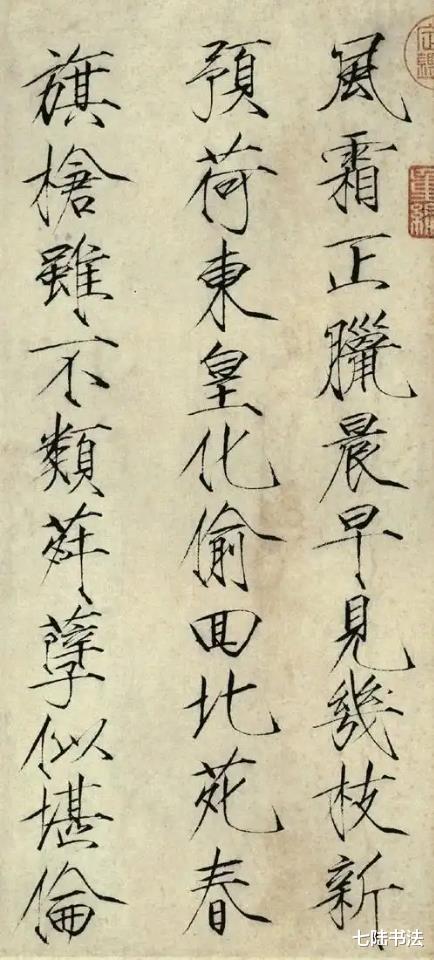 風霜正臘晨早見幾枝新
預荷東皇化偷囬北苑春
旗槍雖不類荈孽似堪倫
七陆书法